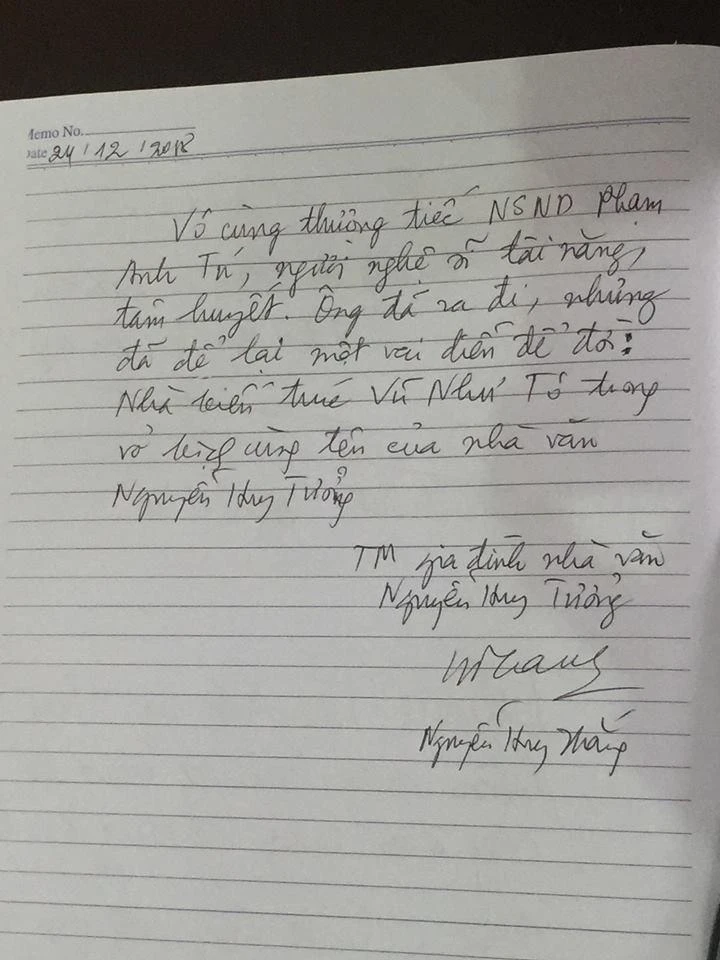 Memo No.
Date 24 / 12 / 2018
Vô cùng thương tiếc NSND Phạm
Anh Tú, người nghệ sĩ tài năng,
tâm huyết. Ông đã ra đi, nhưng
đã để lại một vai diễn để đời:
Nhà kiến trúc Vũ Như Tô trong
vở kịch cùng tên của nhà văn
Nguyễn Huy Tưởng
TM gia đình nhà văn
Nguyễn Huy Tưởng
Nguyễn Huy Thắng